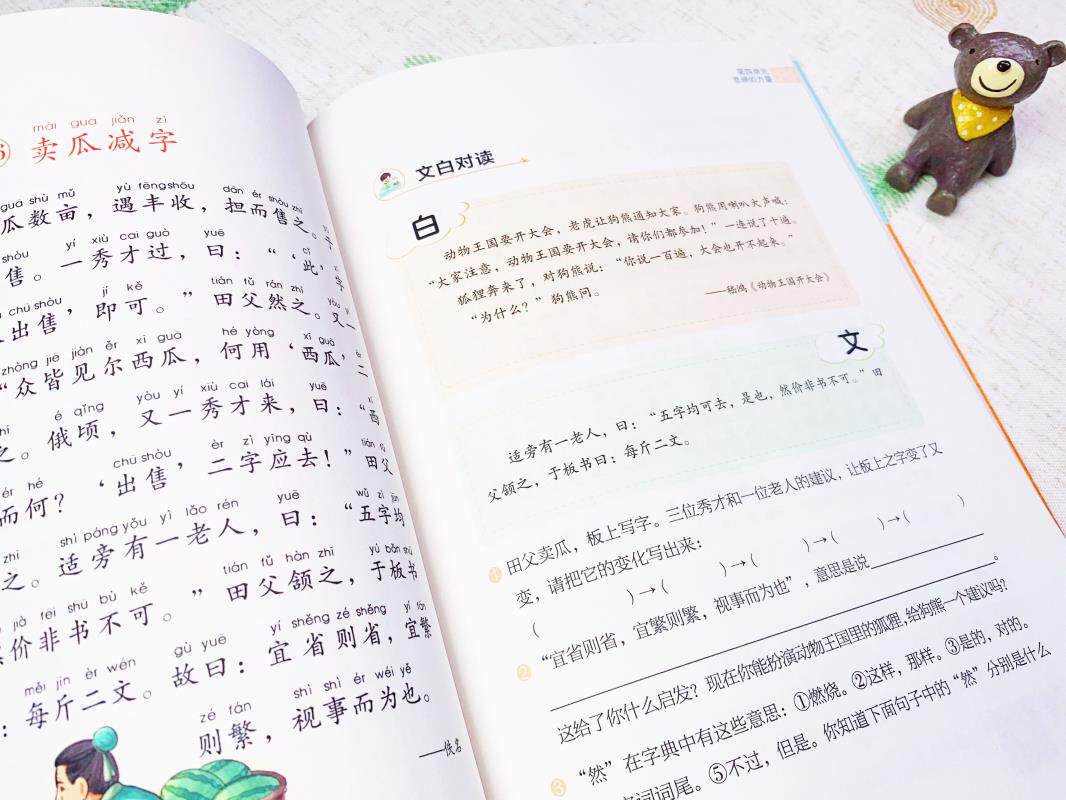 mài gua jiǎn zì
卖瓜减字
guā shù mǔ yù fēngshōu dān ér shòu zhī
瓜数亩，遇丰收，担而售之。
shòu yí xiù cai guò yuē cǐ zì
售。一秀才过，曰：“‘此’字
chū shòu jí kě tián fǔ rán zhī yòu yī
出售’，即可。”田父然之。又一
zhòng jiē jiàn ěr xī guā hé yòng xī guā èr
“众皆见尔西瓜，何用‘西瓜’二
zhī é qǐng yòu yí xiù cai lái yuē
之。俄顷，又一秀才来，曰：“西
ér hé chū shòu èr zì yīng qù tián fǔ
而何？‘出售’二字应去！”田父
zhī shì páng yǒu yì lǎo rén yuē wǔ zì jūn
之。适旁有一老人，曰：“五字均
jià fēi shū bù kě tián fǔ hàn zhī yú bǎn shū
价非书不可。”田父颔之，于板书
měi jīn èr wén gù yuē yí shěng zé shěng yí fán
：每斤二文。故曰：宜省则省，宜繁
zé fán shì shì ér wéi yě
则繁，视事而为也。
——佚名
第四单元
思辨的力量
文白对读
白
动物王国要开大会，老虎让狗熊通知大家。狗熊用喇叭大声喊：
“大家注意，动物王国要开大会，请你们都参加！”一连说了十遍。
狐狸奔来了，对狗熊说：“你说一百遍，大会也开不起来。”
“为什么？”狗熊问。
——嵇鸿《动物王国开大会》
文
适旁有一老人，曰：“五字均可去，是也，然价非书不可。”田
父颔之，于板书曰：每斤二文。
1 田父卖瓜，板上写字。三位秀才和一位老人的建议，让板上之字变了又
变，请把它的变化写出来：
（ ）→（ ）→（ ）→（ ）→（ ）
2 “宜省则省，宜繁则繁，视事而为也”，意思是说 。
这给了你什么启发？现在你能扮演动物王国里的狐狸，给狗熊一个建议吗？
3 “然”在字典中有这些意思：①燃烧。②这样，那样。③是的，对的。
词词尾。⑤不过，但是。你知道下面句子中的“然”分别是什么